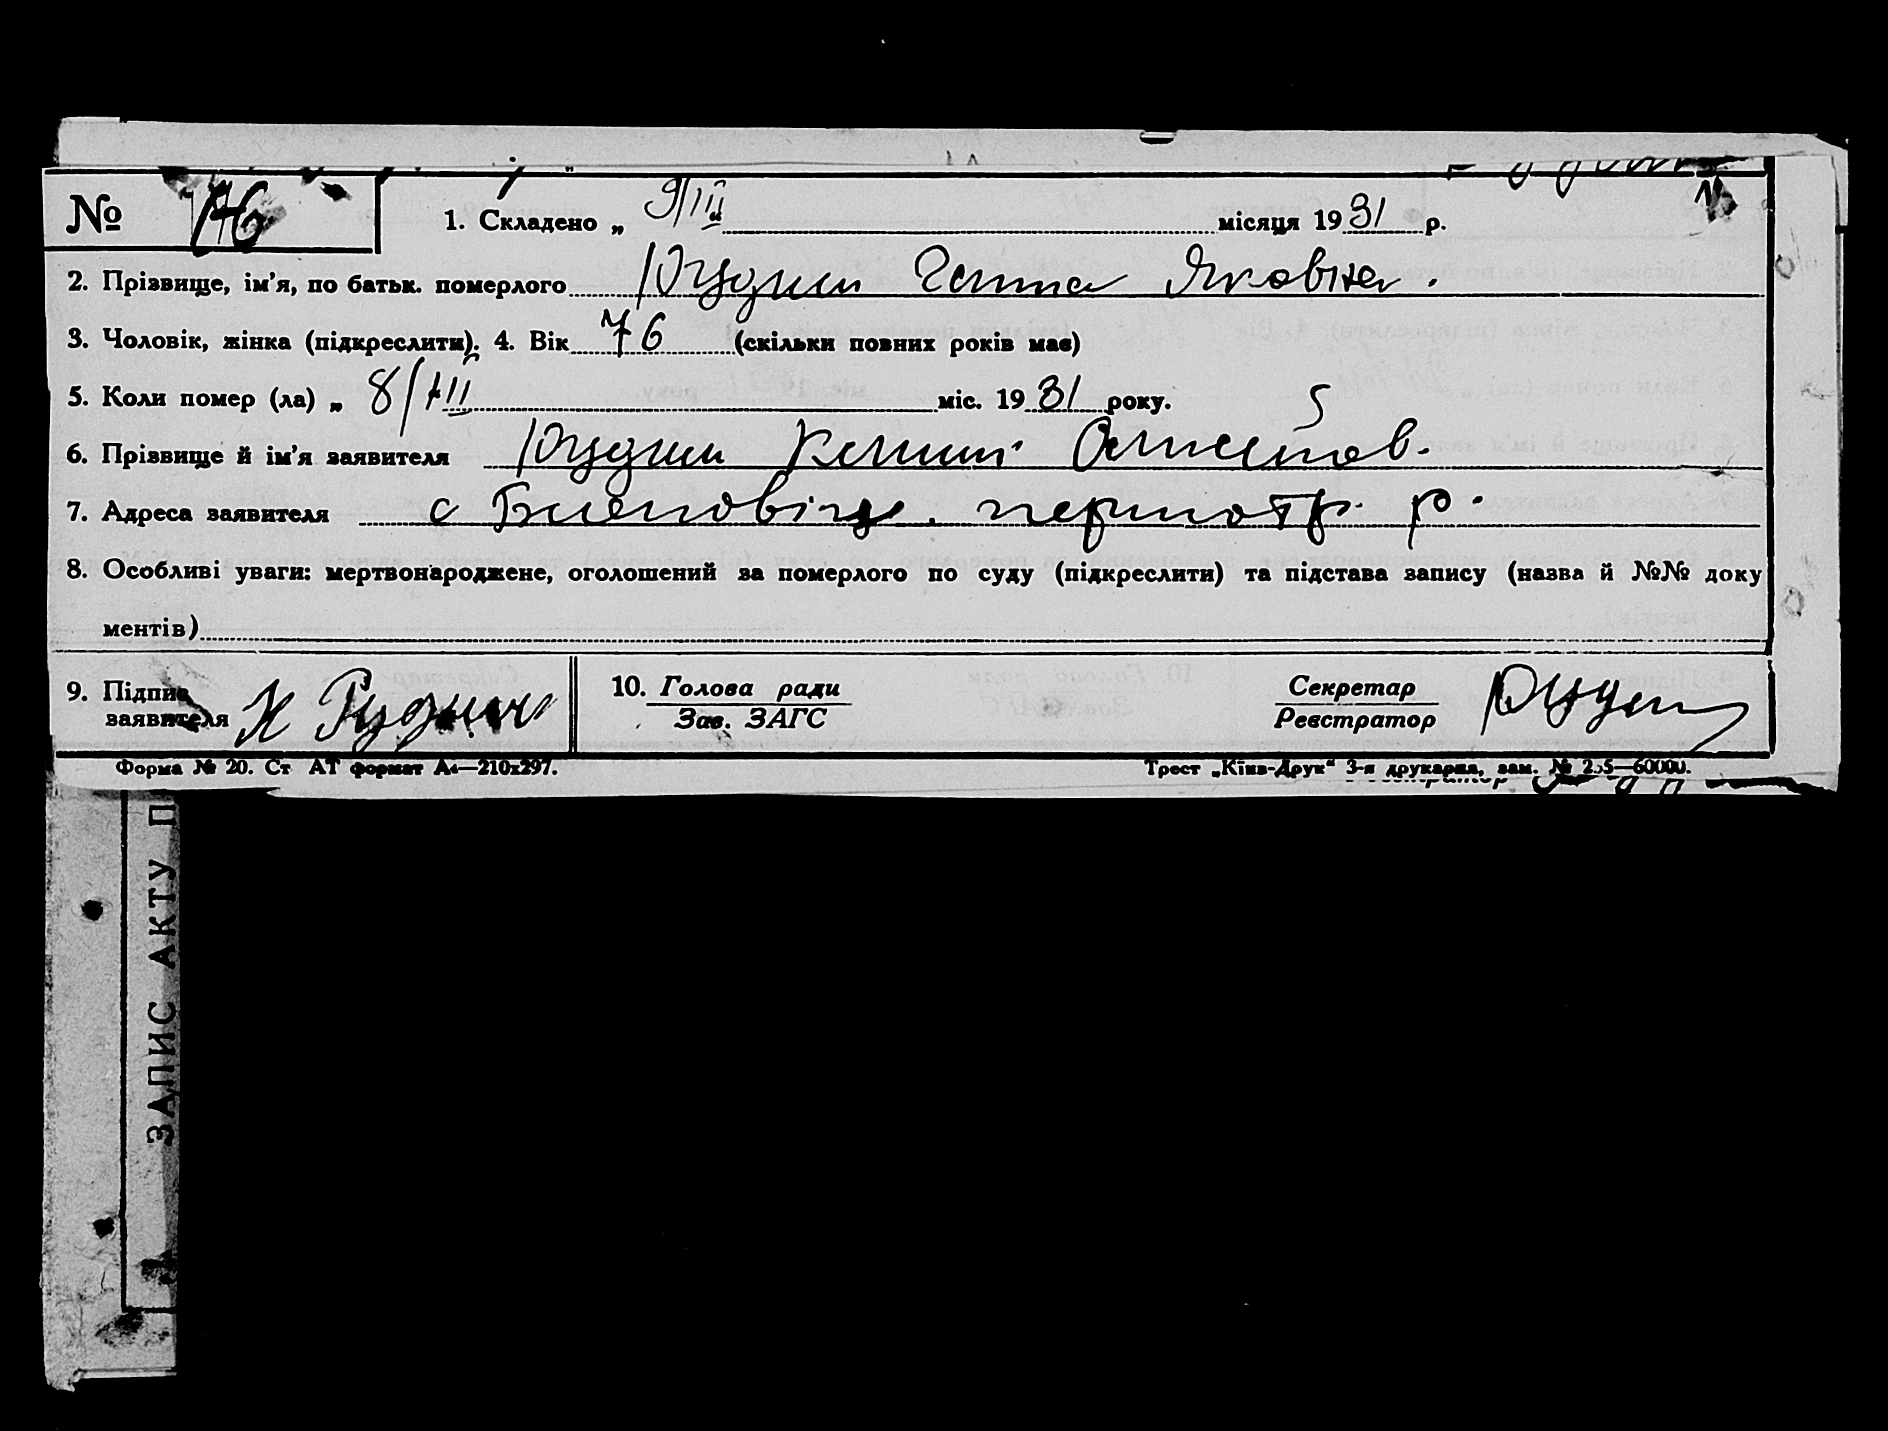 № 16
1. Складено „ 9/III “ місяця 1931 р.
2. Прізвище, ім'я, по батьк. померлого Рудник Ганна Яковна.
3. Чоловік, жінка (підкреслити). 4. Вік 76 (скільки повних років має)
5. Коли помер (ла) „ 8/III міс. 1931 року.
6. Прізвище й ім'я заявителя Рудник
7. Адреса заявителя с р.
8. Особливі уваги: мертвонароджене, оголошений за померлого по суду (підкреслити) та підстава запису (назва й №№ доку
ментів)
9. Підпис заявителя К Рудник
10. Голова ради
Зав. ЗАГС
Секретар
Реєстратор
Форма № 20. Ст АТ формат А4—210х297.
Трест „Київ-Друк“ 3-я друкарня, зам. №
ЗАПИС АКТУ П